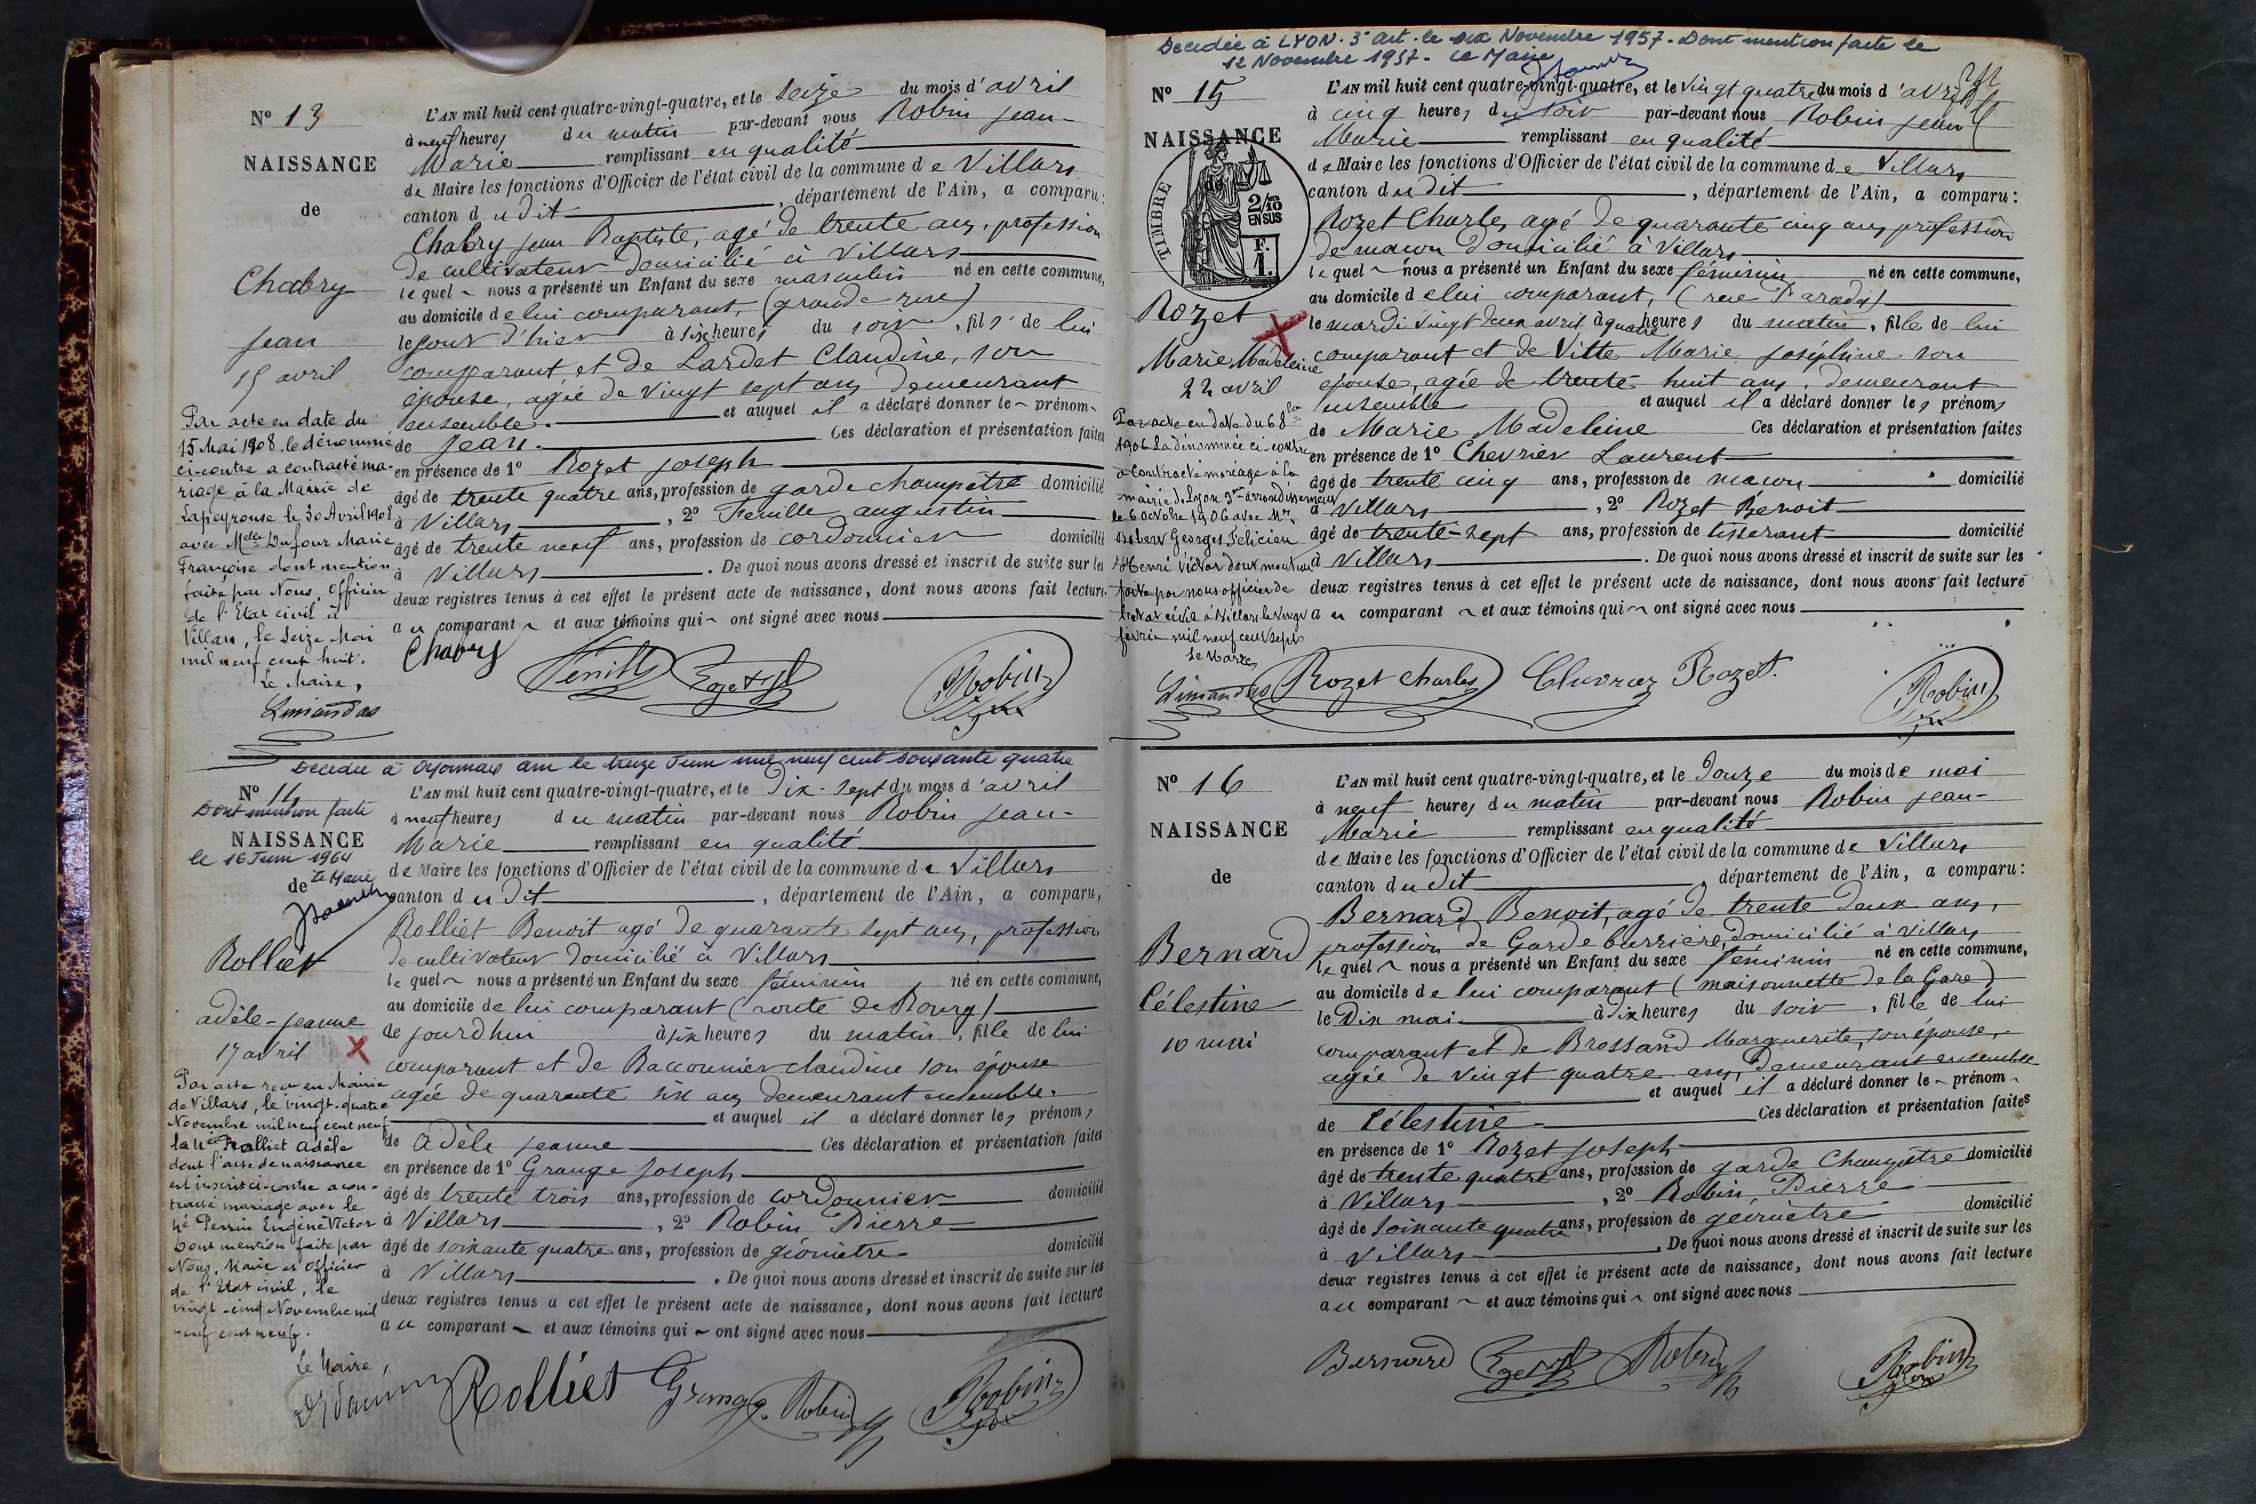 N° 13
NAISSANCE
de
Chabry
Jean
15 avril
Par acte en date du
15 Mai 1908, le dénommé
ci-contre a contracté ma-
riage à la Mairie de
Lapeyrouse le 30 Avril 1908
avec Melle Dufour Marie
Françoise dont mention
faite par Nous, Officier
de l'Etat civil à
Villars, le Seize Mai
mil neuf cent huit.
Le Maire,
Limandas
L'AN mil huit cent quatre-vingt-quatre, et le seize du mois d'avril
à neuf heures du matin par-devant nous Robin Jean-
Marie remplissant en qualité
de Maire les fonctions d'Officier de l'état civil de la commune de Villars
canton du dit, département de l'Ain, a comparu:
Chabry Jean Baptiste, agé de trente ans, profession
de cultivateur domicilié à Villars
lequel nous a présenté un Enfant du sexe masculin né en cette commune,
au domicile de lui comparant, (grande rue)
le jour d'hier à six heures du soir, fils de lui
comparant et de Lardet Claudine, son
épouse, agée de vingt sept ans demeurant
ensemble. et auquel il a déclaré donner le prénom
de Jean. Ces déclaration et présentation faites
en présence de 1° Rozet Joseph
âgé de trente quatre ans, profession de garde champêtre domicilié
à Villars, 2° Fenille augustin
âgé de trente neuf ans, profession de cordonnier domicilié
à Villars. De quoi nous avons dressé et inscrit de suite sur les
deux registres tenus à cet effet le présent acte de naissance, dont nous avons fait lecture
au comparant et aux témoins qui ont signé avec nous
Chabry Fenille Rozet Robin
Décédée à Oyonnax ain le treize Juin mil neuf cent soixante quatre
N° 14
Dont mention faite
NAISSANCE
le 16 Juin 1964
de Le Maire
Rolliet
adèle-jeanne
17 avril
Par acte reçu en Mairie
de Villars, le vingt-quatre
Novembre mil neuf cent neuf
la née Rolliet Adèle
dont l'acte de naissance
est inscrit ci-contre a con-
tracté mariage avec le
né Perrin Eugène Victor
Dont mention faite par
Nous, Maire et Officier
de l'Etat civil, le
vingt-cinq Novembre mil
neuf cent neuf.
Le Maire,
L'AN mil huit cent quatre-vingt-quatre, et le Dix-sept du mois d'avril
à neuf heures du matin par-devant nous Robin Jean-
Marie remplissant en qualité
de Maire les fonctions d'Officier de l'état civil de la commune de Villars
canton du dit, département de l'Ain, a comparu,
Rolliet Benoit agé de quarante sept ans, profession
de cultivateur domicilié à Villars
lequel nous a présenté un Enfant du sexe féminin né en cette commune,
au domicile de lui comparant (route de Bourg)
de jourdhui à six heures du matin, fille de lui
comparant et de Baccounier claudine son épouse
agée de quarante six ans demeurant ensemble.
et auquel il a déclaré donner les prénoms
de Adèle jeanne Ces déclaration et présentation faites
en présence de 1° Grange Joseph
âgé de trente trois ans, profession de cordonnier domicilié
à Villars, 2° Robin Pierre
âgé de soixante quatre ans, profession de géomètre domicilié
à Villars. De quoi nous avons dressé et inscrit de suite sur les
deux registres tenus à cet effet le présent acte de naissance, dont nous avons fait lecture
au comparant et aux témoins qui ont signé avec nous
Rolliet Grange Robin Robin
Décédée à LYON. 3e art. le six Novembre 1957. Dont mention faite le
12 Novembre 1957. Le Maire
N° 15
NAISSANCE
de
TIMBRE
2/10
EN SUS
F.
1.
Rozet
Marie Madeleine
22 avril
Par acte en date du 6 8bre
1906 La dénommée ci-contre
a contracté mariage à la
mairie de Lyon 3me arrondissement
le 6 octobre 1906 avec Mr.
Georges Félicien
Henri Victor dont mention
faite par nous officier de
l'état civil à Villars le vingt
février mil neuf cent sept
Le Maire,
Limandas
L'AN mil huit cent quatre-vingt-quatre, et le vingt quatre du mois d'avril
à cinq heures du soir par-devant nous Robin Jean
Marie remplissant en qualité
de Maire les fonctions d'Officier de l'état civil de la commune de Villars
canton du dit, département de l'Ain, a comparu:
Rozet Charles, agé de quarante cinq ans, profession
de maçon domicilié à Villars
lequel nous a présenté un Enfant du sexe féminin né en cette commune,
au domicile de lui comparant, (rue Paradis)
le mardi vingt deux avril à quatre heures du matin, fille de lui
comparant et de Vitte Marie Joséphine son
épouse, agée de trente huit ans, demeurant
ensemble et auquel il a déclaré donner les prénoms
de Marie Madeleine Ces déclaration et présentation faites
en présence de 1° Chevrier Laurent
âgé de trente cinq ans, profession de maçon domicilié
à Villars, 2° Rozet Benoit
âgé de trente-sept ans, profession de tisserant domicilié
à Villars. De quoi nous avons dressé et inscrit de suite sur les
deux registres tenus à cet effet le présent acte de naissance, dont nous avons fait lecture
au comparant et aux témoins qui ont signé avec nous
Rozet Charles Rozet. Robin
N° 16
NAISSANCE
de
Bernard
Célestine
10 mai
L'AN mil huit cent quatre-vingt-quatre, et le douze du mois de mai
à neuf heures du matin par-devant nous Robin Jean-
Marie remplissant en qualité
de Maire les fonctions d'Officier de l'état civil de la commune de Villars
canton du dit, département de l'Ain, a comparu:
Bernard Benoit, agé de trente deux ans,
profession de Garde barrière, domicilié à Villars
lequel nous a présenté un Enfant du sexe féminin né en cette commune,
au domicile de lui comparant (maisonnette de la Gare)
le Dix mai à dix heures du soir, fille de lui
comparant et de Brossand Marguerite, son épouse,
agée de vingt quatre ans, demeurant ensemble
et auquel il a déclaré donner le prénom
de Célestine Ces déclaration et présentation faites
en présence de 1° Rozet Joseph
âgé de trente quatre ans, profession de garde Champêtre domicilié
à Villars, 2° Robin Pierre
âgé de soixante quatre ans, profession de géomètre domicilié
à Villars. De quoi nous avons dressé et inscrit de suite sur les
deux registres tenus à cet effet le présent acte de naissance, dont nous avons fait lecture
au comparant et aux témoins qui ont signé avec nous
Bernard Rozet Robin Robin